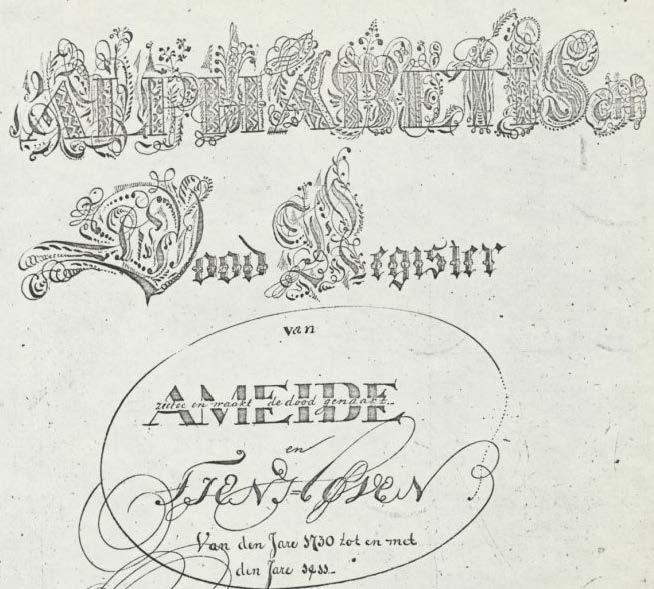 ALPHABETISch
Dood Register
van
AMEIDE
en waakt de dood genaakt
en
TIENHOVEN
Van den Jare 1730 tot en met
den Jare